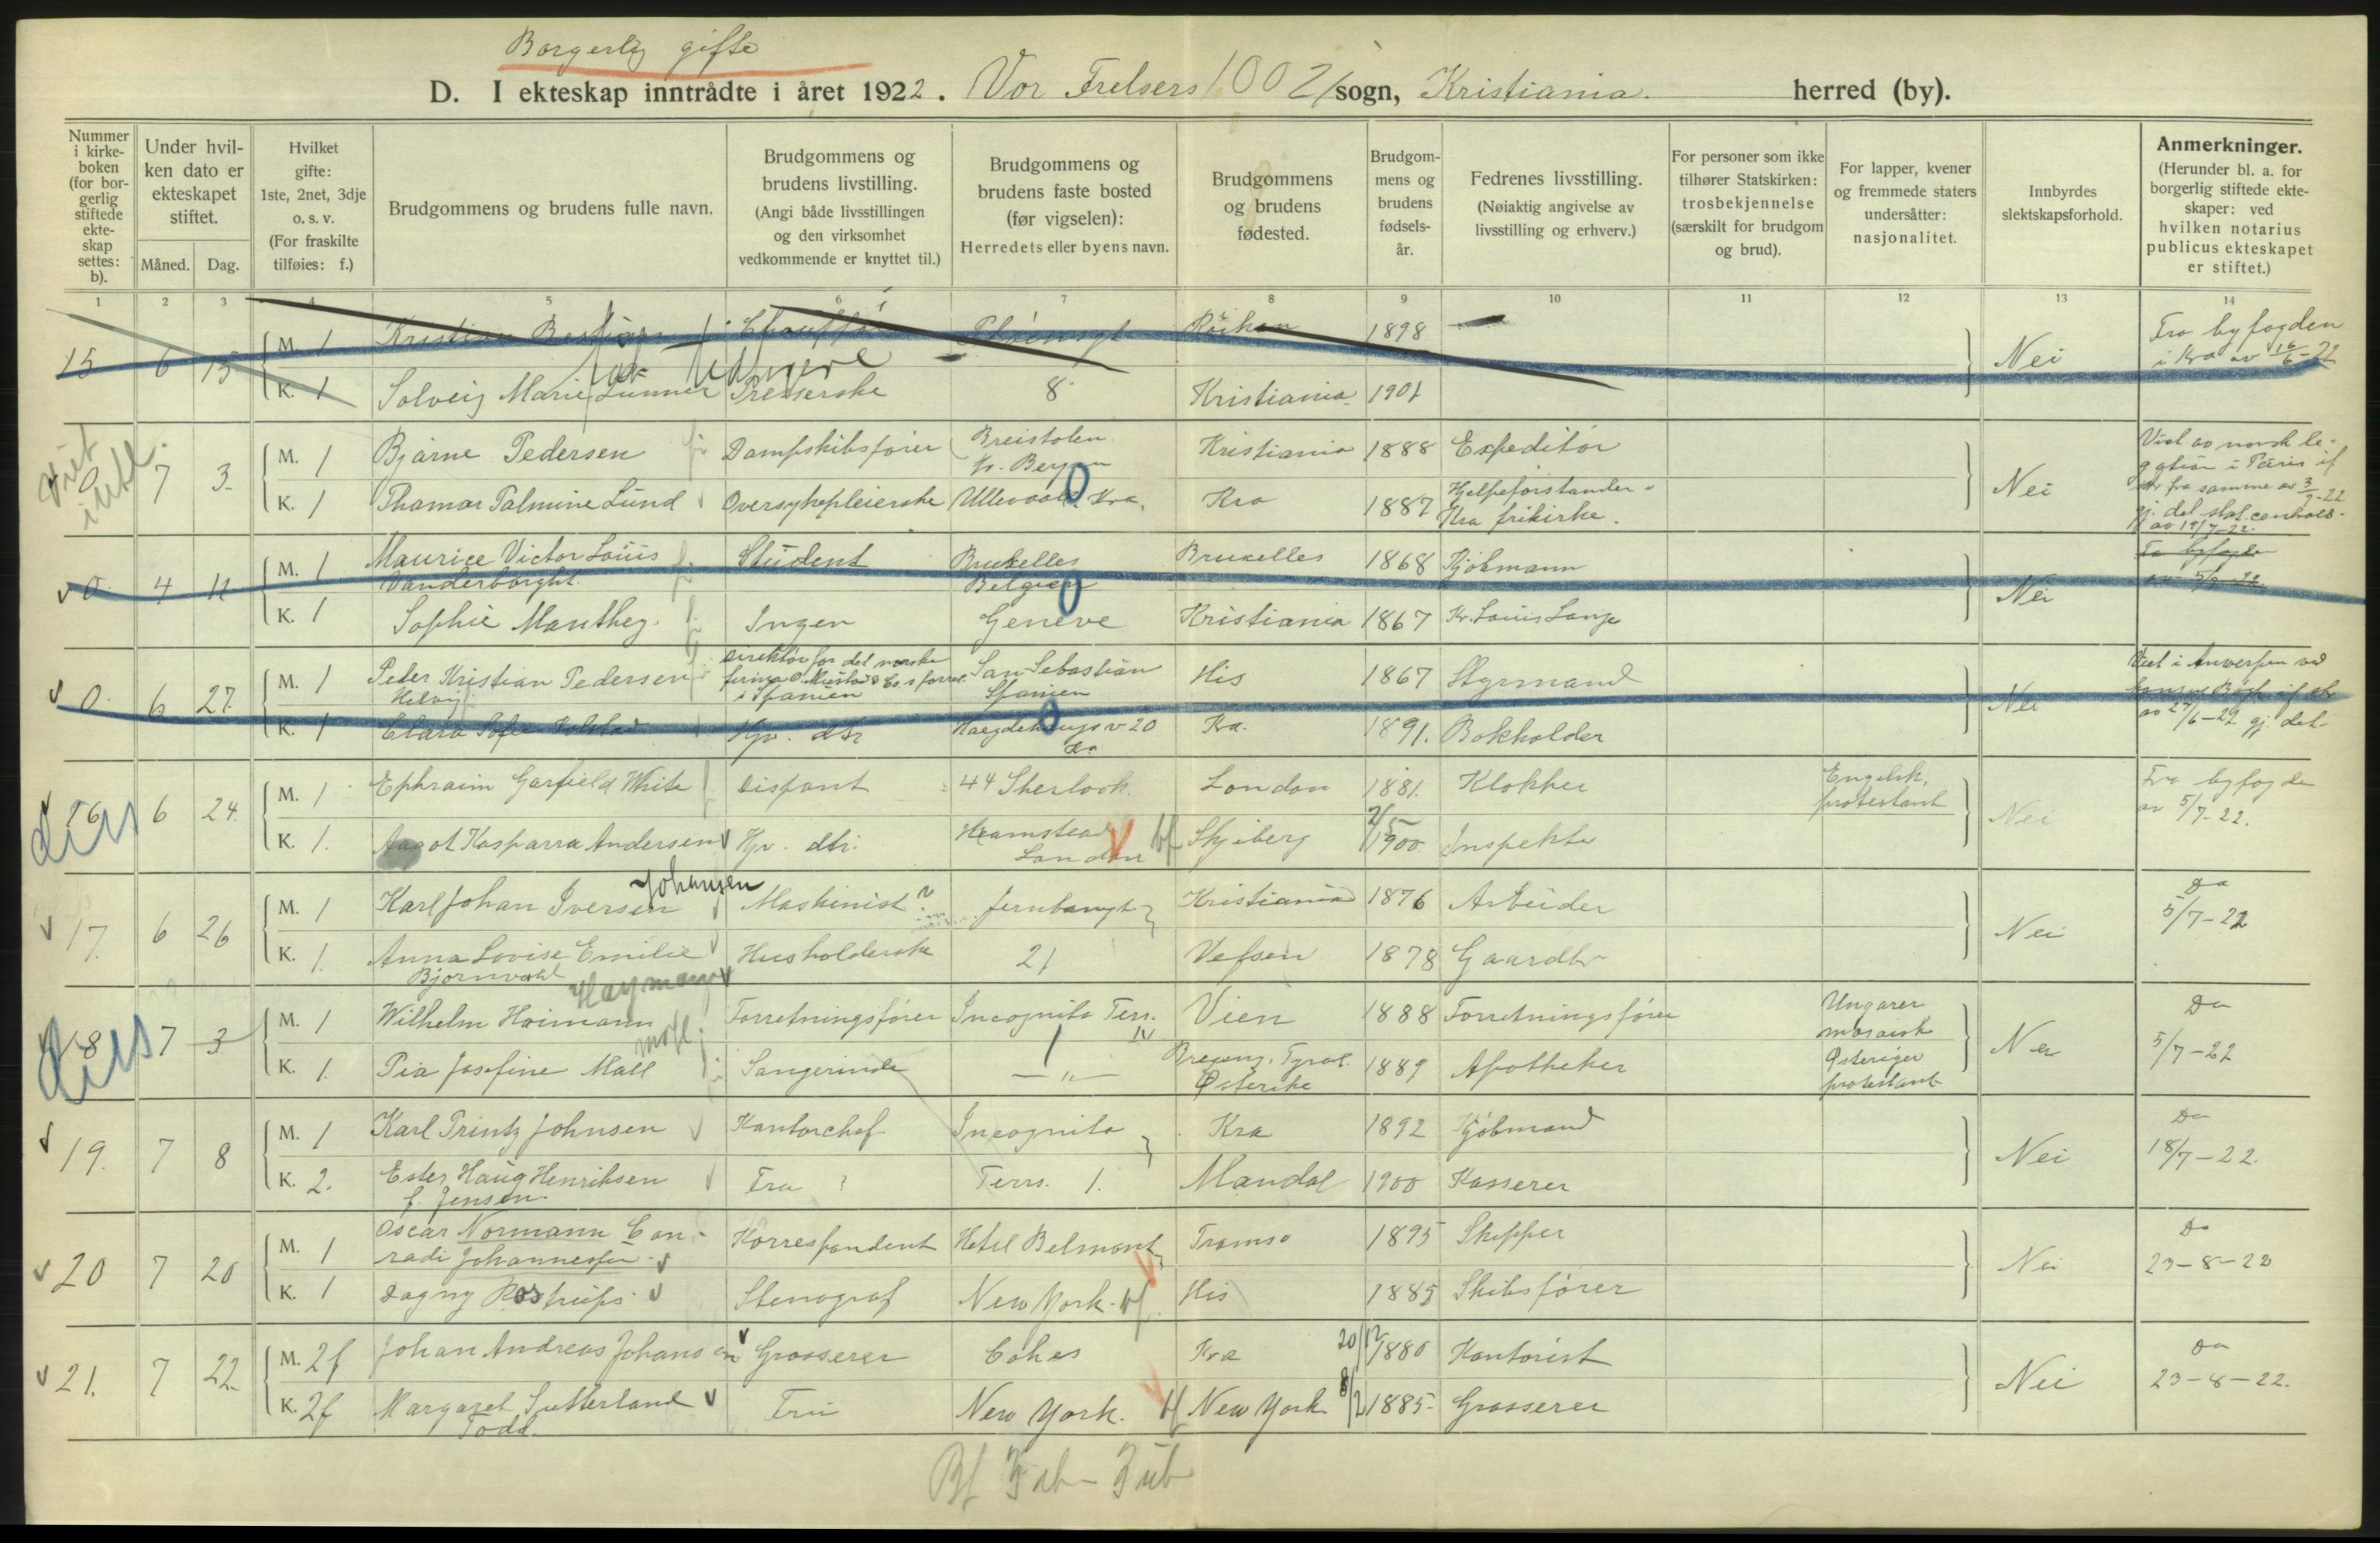 Borgerlig gifte
D. I ekteskap inntrådte i året 1922. Vor Frelsers 1002/ sogn, Kristiania. herred (by).
Nummer i kirke-boken (for bor-gerlig stiftede ekte-skap settes: b).
Under hvil-ken dato er ekteskapet stiftet.
Måned. Dag.
Hvilket gifte: 1ste, 2net, 3dje o. s. v. (For fraskilte tilføies: f.)
Brudgommens og brudens fulle navn.
Brudgommens og brudens livstilling. (Angi både livsstillingen og den virksomhet vedkommende er knyttet til.)
Brudgommens og brudens faste bosted (før vigselen): Herredets eller byens navn.
Brudgommens og brudens fødested.
Brudgom-mens og brudens fødsels-år.
Fedrenes livsstilling. (Nøiaktig angivelse av livsstilling og erhverv.)
For personer som ikke tilhører Statskirken: trosbekjennelse (særskilt for brudgom og brud).
For lapper, kvener og fremmede staters undersåtter: nasjonalitet.
Innbyrdes slektskapsforhold.
Anmerkninger. (Herunder bl. a. for borgerlig stiftede ekte-skaper: ved hvilken notarius publicus ekteskapet er stiftet.)
1 2 3 4 5 6 7 8 9 10 11 12 13 14
15 6 15 M. 1 Kristian 1898 Nei Fra byfogden
i Kra av 16/6-22
K. 1 Solveig Marie Lunner Presserske 8 Kristiania 1901
Viet
M. 1 Bjarne Pedersen Dampskibsfører Breistolen Kristiania 1888 Expeditør Viet av norsk le-
0 7 3 pr. Bergen Nei gation i Paris if
K. 1 Thamar Palmine Lund Oversykepleierske Ullevaal. Kra. Kra 1887 Hjelpeforstander fra samme av 3/7-22
Kra frikirke. gj. det stat. centralb.
av 19/7-22.
0 4 11 M. 1 Maurice Victor Louis Student Bruxelles Bruxelles 1868 Kjøbmann Nei
Vanderborght. Belgien av 5/7-22
K. 1 Sophie Manthey. Ingen Geneve Kristiania 1867 Kr. Louis Lange
0. 6 27. M. 1 Peter Kristian Pedersen Direktør for det norske San Sebastian His 1867 Styrmand Nei Viet i Antwerpen ved
Helvig firma O. Mustad & Co.s forret. i Spanien Spanien
K. 1 Clara Sofie Holstad Hjv. dtr 20 Kra. 1891. Bokholder av 27/6-22 gj. det
dis 16 6 24. M. 1 Ephraim Garfield White Dispont 44 Sherlook London 1881. Klokker Engelsk, protestant Nei Fra byfogden
av 5/7-22.
K. 1. Aagot Kasparra Andersen Hjv. dtr. Hamstead London bf Skjeberg 2/5 1900 Inspektø
Johansen
17. 6 26 M. 1 Karl Johan Iversen Maskinist ? Jernbangt. Kristiania 1876 Arbeider Nei Da
5/7-22
K. 1. Anna Lovise Emilie Husholderske 21 Vefsen 1878 Gaardbr
Bjornvahl
Haymann
dis 18 7 3 M. 1 Wilhelm Haimann Forretningsfører Incognito Terr. Vien 1888 Forretningsfører Ungarer mosaisk Nei Da
mos. 1 5/7-22
K. 1. Pia Josefine Mall Sangerinde — " — Bregenz, Tyrol. Østerike 1889 Apotheker Østeriger protestant
19. 7 8 M. 1 Karl Printz Johnsen Kontorchef Incognito Kra 1892 Kjøbmand Nei Da
18/7-22.
K. 2. Ester Haug Henriksen Fru Terr. 1. Mandal 1900 Kasserer
f. Jensen.
20 7 20 M. 1 Oscar Normann Con- Korrespondent Hotel Belmont Tromsø 1895 Skipper Nei Do
radi Johannessen 23-8-22
K. 1 Dagny Rostrup Stenograf New York. bf His 1885 Skibsfører
21. 7 22 M. 2f Johan Andreas Johansen Grosserer Cohes Kra 20/12 1880 Kontorist Nei Da
23-8-22.
K. 2f Margaret Sutterland Fru New York. bf New York 8/2 1885- Grosserer
Todd.